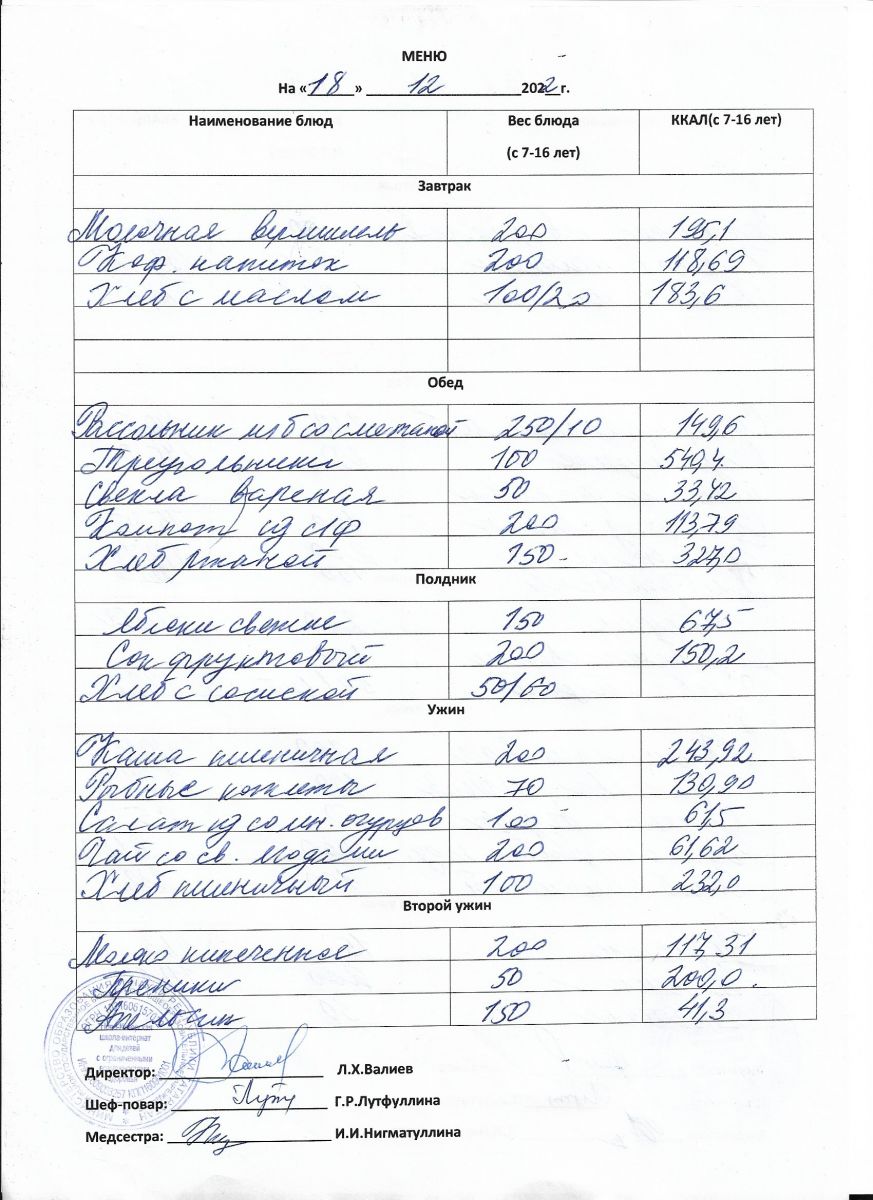 МЕНЮ
На «18» 12 2022 г.
Наименование блюд Вес блюда (с 7-16 лет) ККАЛ(с 7-16 лет)
Завтрак
Молочная вермишель 200 195,1
Коф. напиток 200 118,69
Хлеб с маслом 100/20 183,6
Обед
Рассольник м/б со сметаной 250/10 149,6
Треугольники 100 549,4
Свекла вареная 50 33,42
Компот из с/ф 200 113,79
Хлеб ржаной 150 327,0
Полдник
Яблоки свежие 150 67,5
Сок фруктовый 200 150,2
Хлеб с сосиской 50/60
Ужин
Каша пшеничная 200 243,92
Рыбные котлеты 70 130,90
Салат из солён. огурцов 100 61,5
Чай со св. ягодами 200 61,62
Хлеб пшеничный 100 232,0
Второй ужин
Молоко кипеченное 200 117,31
Пряники 50 200,0
Апельсин 150 41,3
школа-интернат
для детей
с ограниченными
Директор: Л.Х.Валиев
Шеф-повар: Г.Р.Лутфуллина
Медсестра: И.И.Нигматуллина